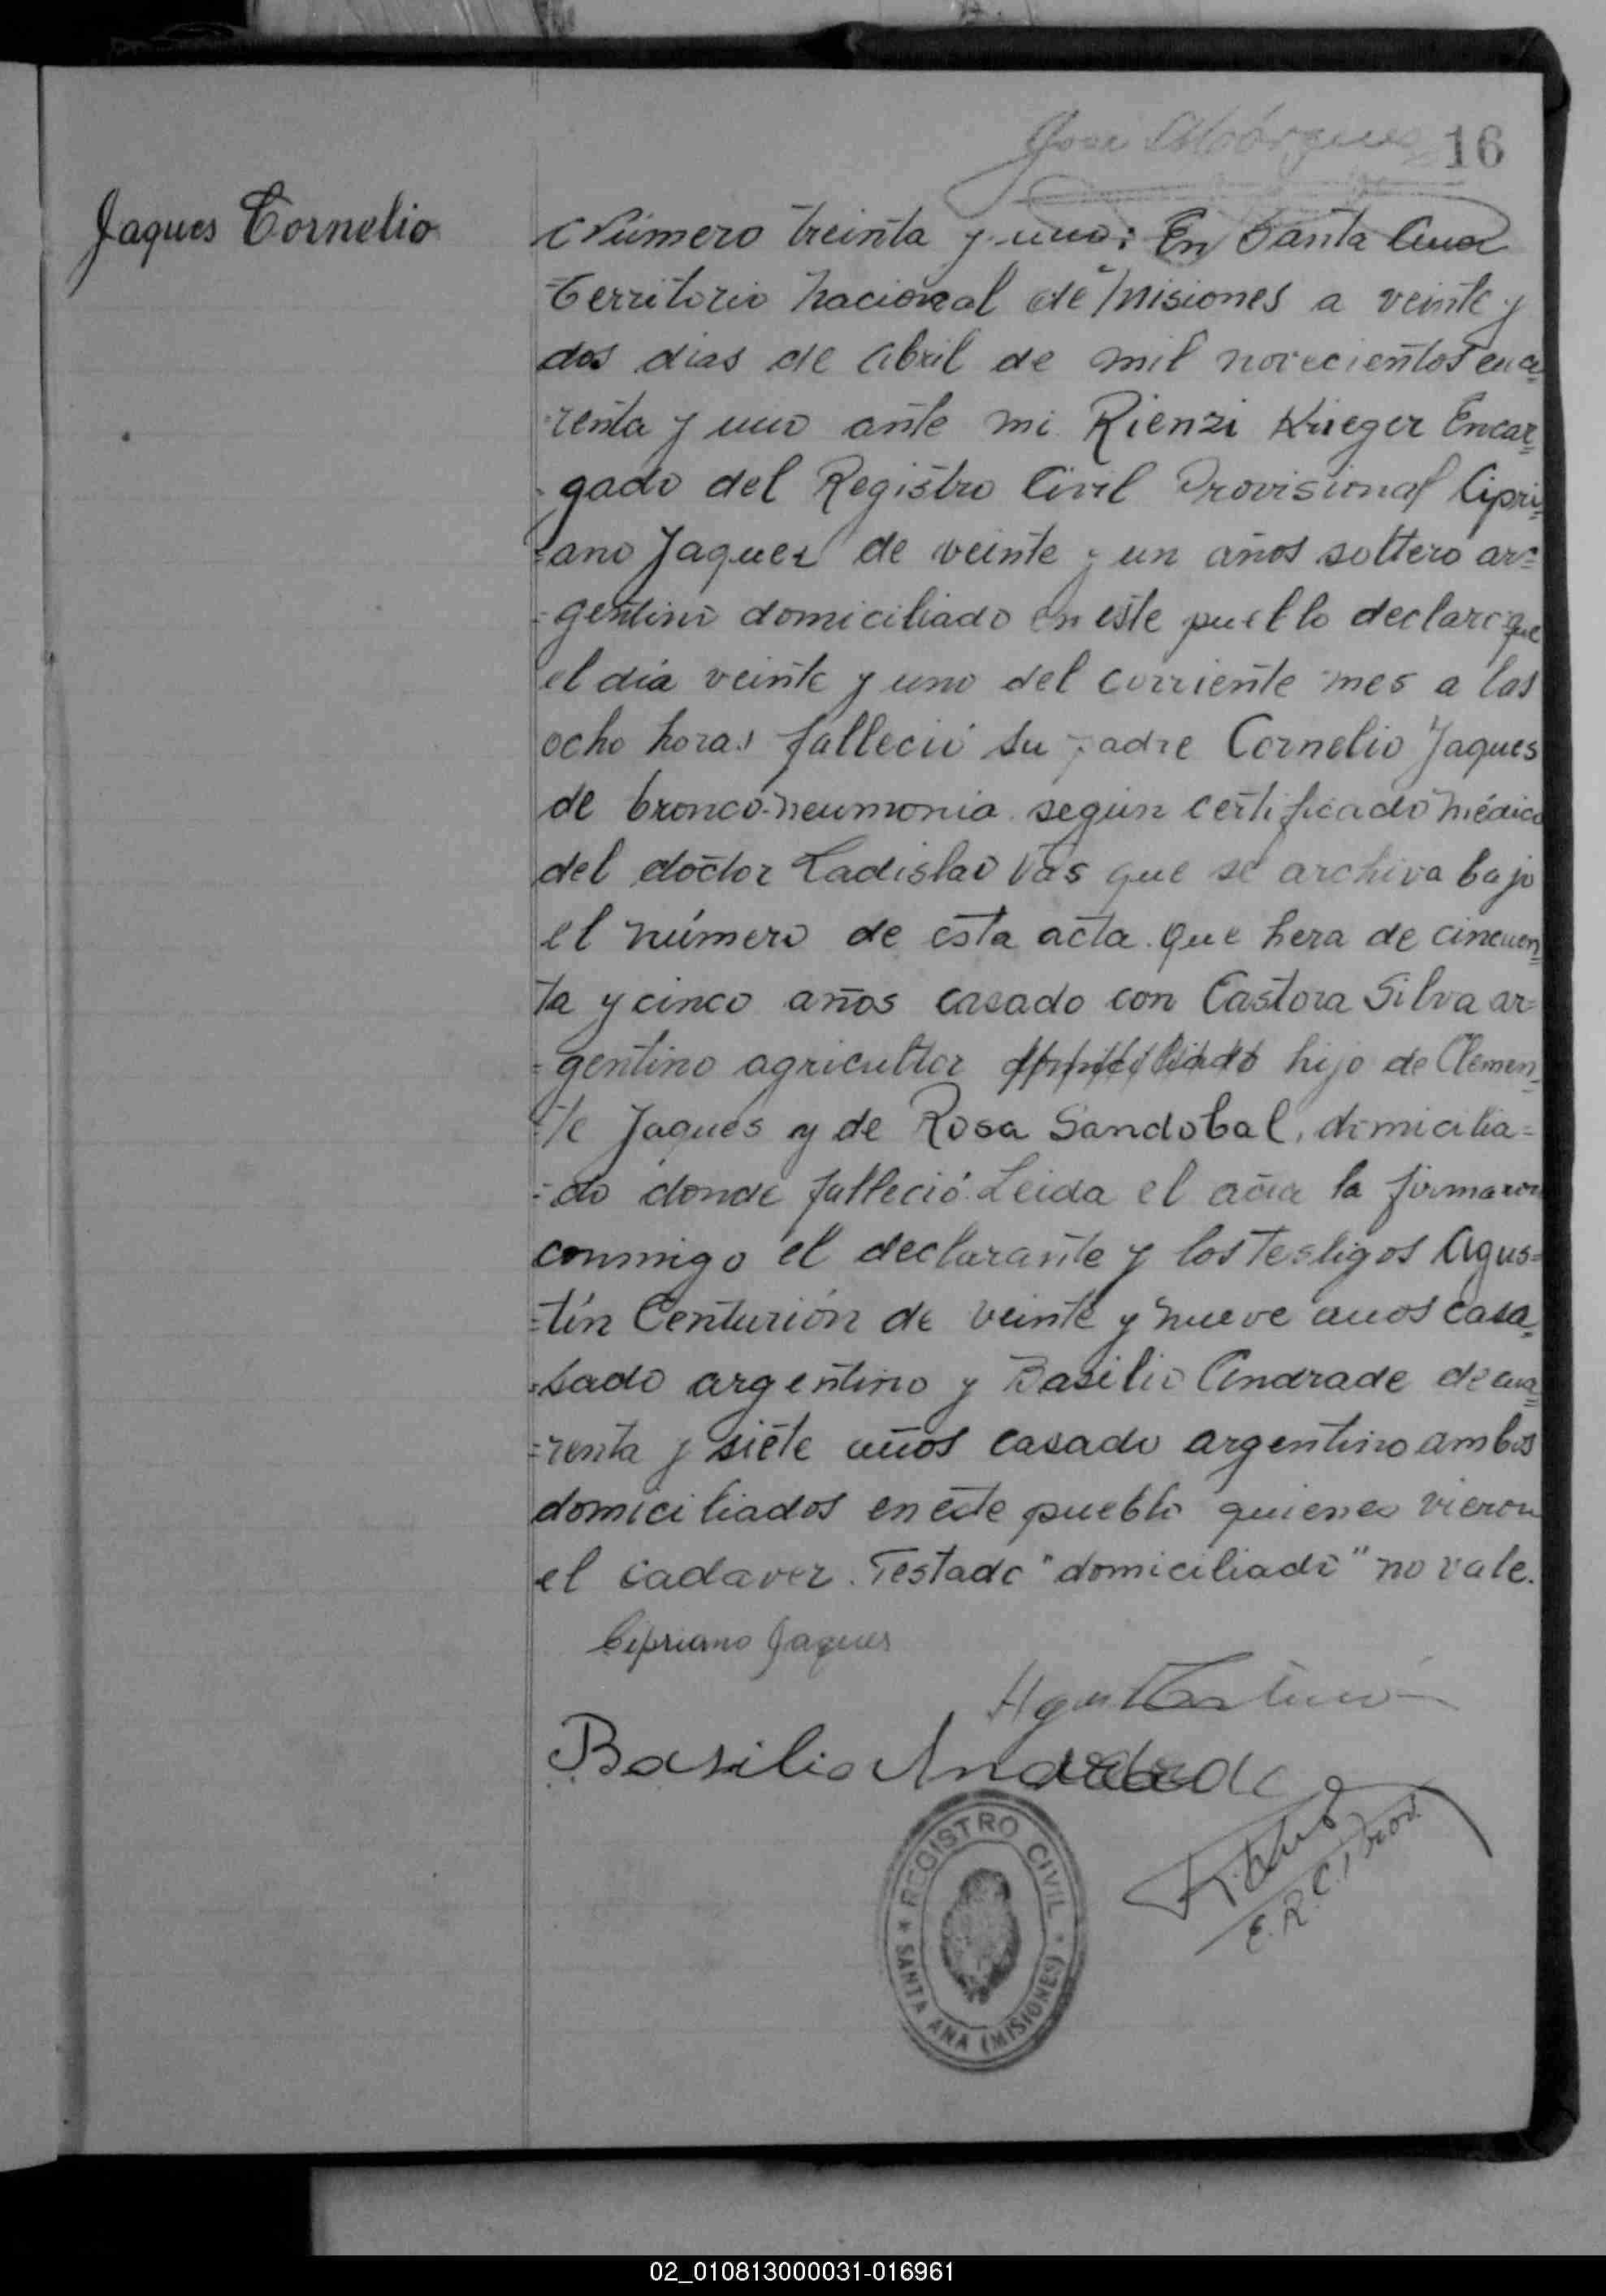 16
Jaques Cornelio
Número treinta y uno: En Santa Ana
Territorio Nacional de Misiones a veinte y
dos dias de Abril de mil novecientos cua=
renta y uno ante mi Rienzi Krieger Encar=
gado del Registro Civil Provisional Cipri=
=ano Jaques de veinte y un años soltero ar=
=gentino domiciliado en este pueblo declaró que
el día veinte y uno del corriente mes a las
ocho horas falleció su padre Cornelio Jaques
de bronco-neumonia según certificado médico
del doctor Ladislao Vas que se archiva bajo
el número de esta acta. que hera de cincuen=
ta y cinco años casado con Castora Silva ar=
=gentino agricultor domiciliado hijo de Clemen=
=te Jaques y de Rosa Sandobal, domicilia=
=do donde falleció. Leida el acta la firmaron
conmigo el declarante y los testigos Agus=
=tín Centurión de veinte y nueve años casa=
=sado argentino y Basilio Andrade de cua=
=renta y siete años casado argentino ambos
domiciliados en este pueblo quienes vieron
el cadaver. Testado "domiciliado" no vale.
Cipriano Jaques
Basilio Andrade
E. R. C. Prov.
REGISTRO CIVIL
* SANTA ANA (MISIONES) *
02_010813000031-016961